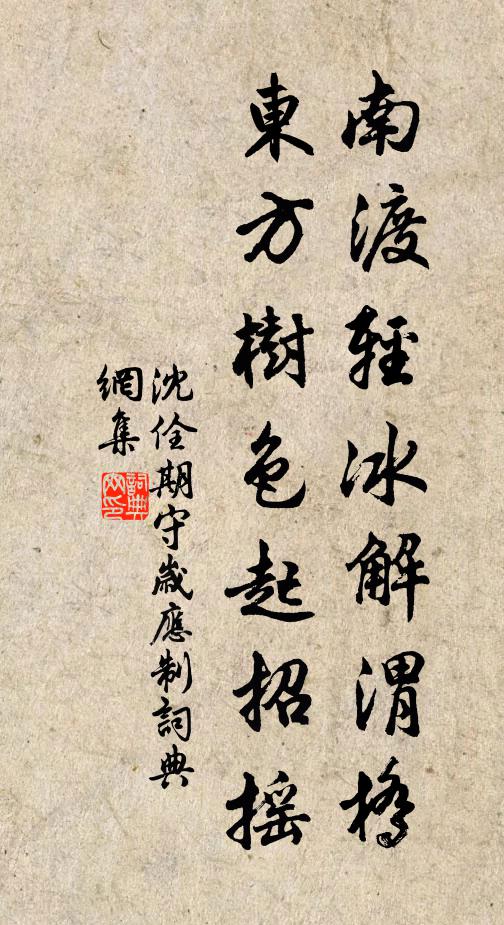 南渡輕冰解渭橋
東方樹色起招搖
沈佺期守歲應制詞典
網集
詞典
網印